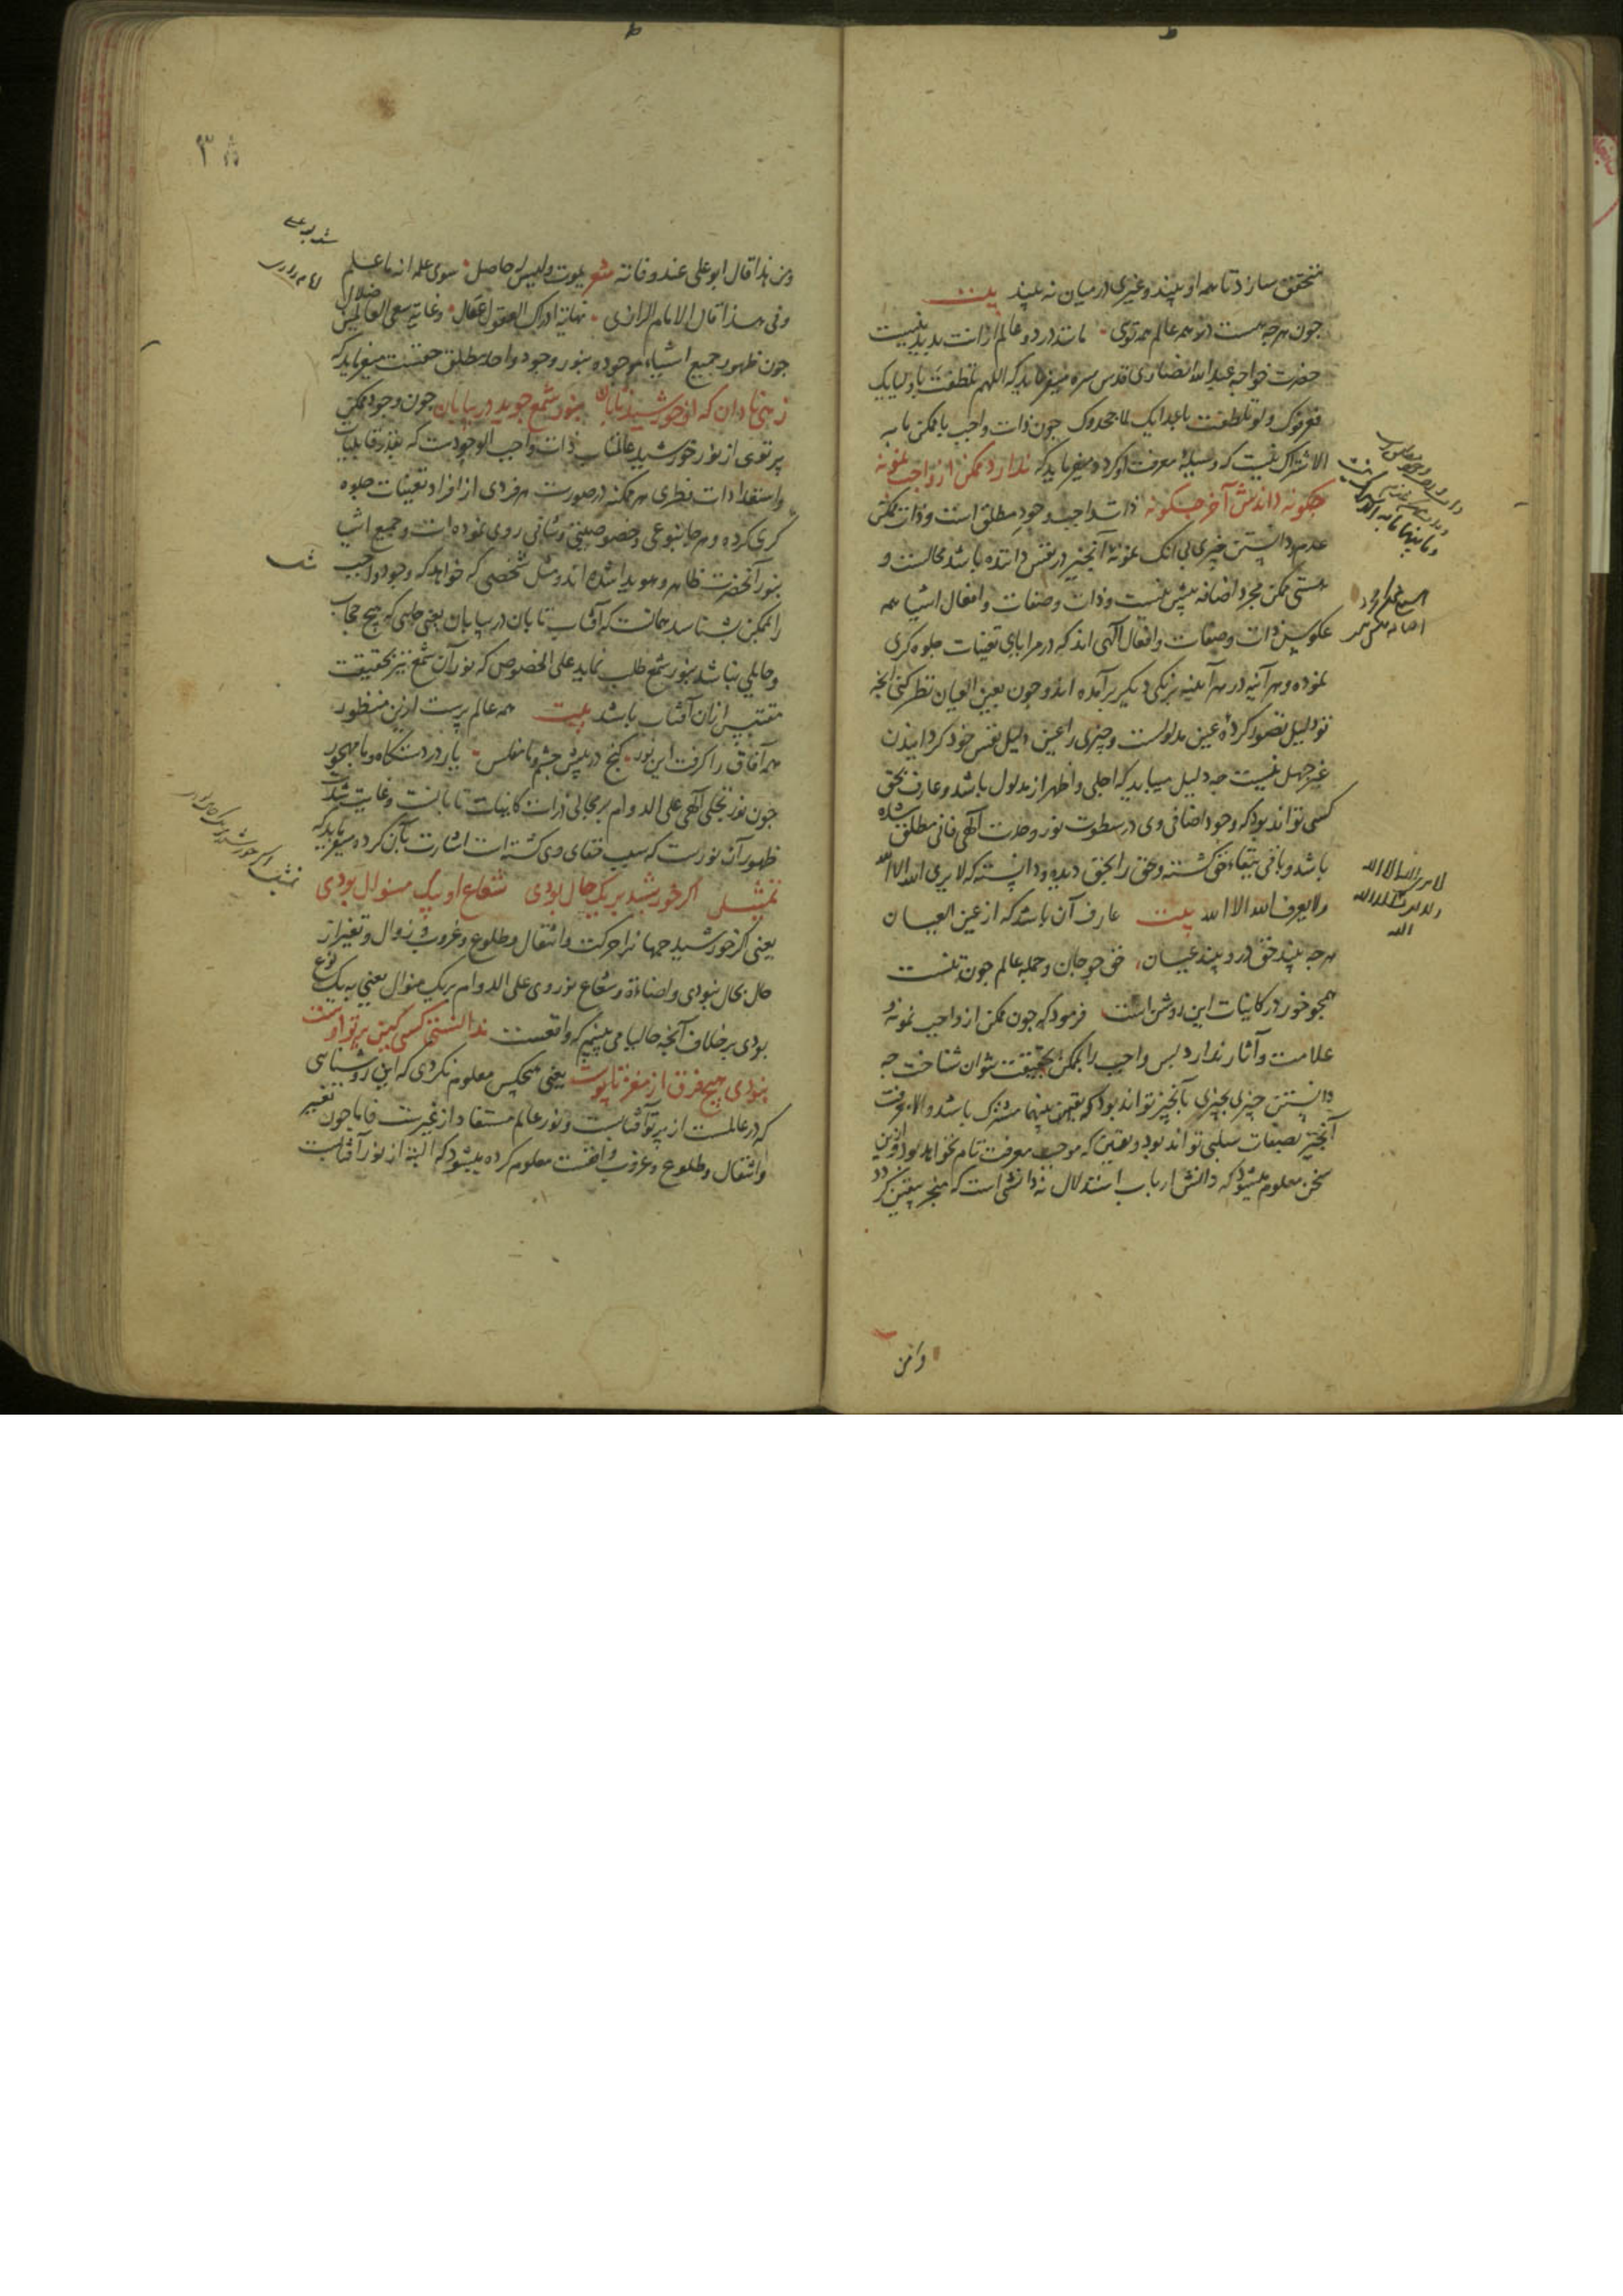 متحقق سازد تا همه او بیند و غیری در میان نه بیند بیت
چون هرچه هست در همه عالم همه توی مانند در دو عالم ازانت پدید نیست
حضرت خواجه عبدالله انصاری قدس سره میفرماید که اللهم تلطفت باولیایک
فعرفوک ولو تلطفت باعدایک لما جحدوک چون ذات واجب با ممکن ما به
الاشتراک نیست که وسیلهٔ معرفت او گردد میفرماید که ندارد ممکن از واجب نمونه
چگونه داندش آخر چگونه ذات واجب وجود مطلق است و ذات ممکن
عدم و دانستن چیزی بی آنک نمونهٔ آنچیز در نفس داننده باشد محالست و
هستی ممکن مجرد اضافه بیش نیست و ذات و صفات و افعال اشیا همه
عکوس ذات و صفات و افعال الهی اند که در مرایای تعینات جلوه گری
نموده و هر آینه در هر آینه برنگی دیگر برآمده اند و چون بعین العیان نظر کنی آنچه
تو دلیل تصور کردهٔ عین مدلولست و چیزی را عین دلیل نفس خود گردانیدن
غیر جهل نیست چه دلیل میباید که اجلی و اظهر از مدلول باشد و عارف بحق
کسی تواند بود که وجود اضافی وی در سطوت نور وحدت الهی فانی مطلق شده
باشد و باقی ببقاء حق گشته و حق را بحق دیده و دانسته که لا یری الله الا الله
ولا یعرف الله الا الله بیت عارف آن باشد که از عین العیان
هرچه بیند حق درو بیند عیان حق چو جان و جمله عالم چون تنست
همچو خور در کاینات این روشن است فرمود که چون ممکن از واجب نمونه و
علامت و آثار ندارد پس واجب را بممکن بحقیقت نتوان شناخت چه
دانستن چیزی بچیزی بآنچیز تواند بود که بینهما مشترک باشد والا معرفت
آنچیز بصفات سلبی تواند بود و یقین که موجب معرفت تام نخواهد بود و ازین
سخن معلوم میشود که دانش ارباب استدلال نه دانشی است که منجر بیقین گردد
و من هذا قال ابو علی عند وفاته شعر یموت و لیس له حاصل سوی علمه انه ما علم
و فی هذا قال الامام الرازی نهایة ادراک العقول عقال و غایة سعی العالمین ضلال
چون ظهور جمیع اشیاء موجوده بنور وجود واحد مطلق حقست میفرماید که
زهی نادان که او خورشید تابان بنور شمع جوید در بیابان چون وجود ممکن
پرتوی از نور خورشید عالمتاب ذات واجب الوجودست که بقدر قابلیات
و استعدادات فطری هر ممکنه در صورت هر فردی از افراد تعینات جلوه
گری کرده و هر جا بنوعی و خصوصیتی و شانی روی نموده است و جمیع اشیا
بنور آنحضرت ظاهر و هویدا شده اند و مثل شخصی که خواهد که وجود واجب
را بممکن بشناسد همانست که آفتاب تابان در بیابان یعنی جایی که هیچ حجاب
و حایلی نباشد بنور شمع طلب نماید علی الخصوص که نور آن شمع نیز بحقیقت
مقتبس از آن آفتاب باشد بیت همه عالم پرست ازین منظور
همه آفاق را گرفت این نور گنج در پیش چشم و ما مفلس یار در دستگاه و ما مهجور
چون نور تجلی الهی علی الدوام بر مجالی ذرات کاینات تابانست و غایت شدت
ظهور آن نورست که سبب خفای وی گشته است اشارت بآن کرده میفرماید که
تمثیل اگر خورشید بر یک حال بودی شعاع او بیک منوال بودی
یعنی اگر خورشید جهانرا حرکت و انتقال و طلوع و غروب و زوال و تغیر از
حال بحال نبودی و اضاءة و شعاع نور وی علی الدوام بر یک منوال یعنی به یک نوع
بودی بر خلاف آنچه حالیا می بینیم که واقعست ندانستی کسی کین پرتو اوست
نبودی هیچ فرق از مغز تا پوست یعنی هیچکس معلوم نکردی که این روشنایی
که در عالمست از پرتو آفتابست و نور عالم مستفاد از غیرست فاما چون تغییر
و انتقال و طلوع و غروب واقعست معلوم کرده میشود که البته از نور آفتابست